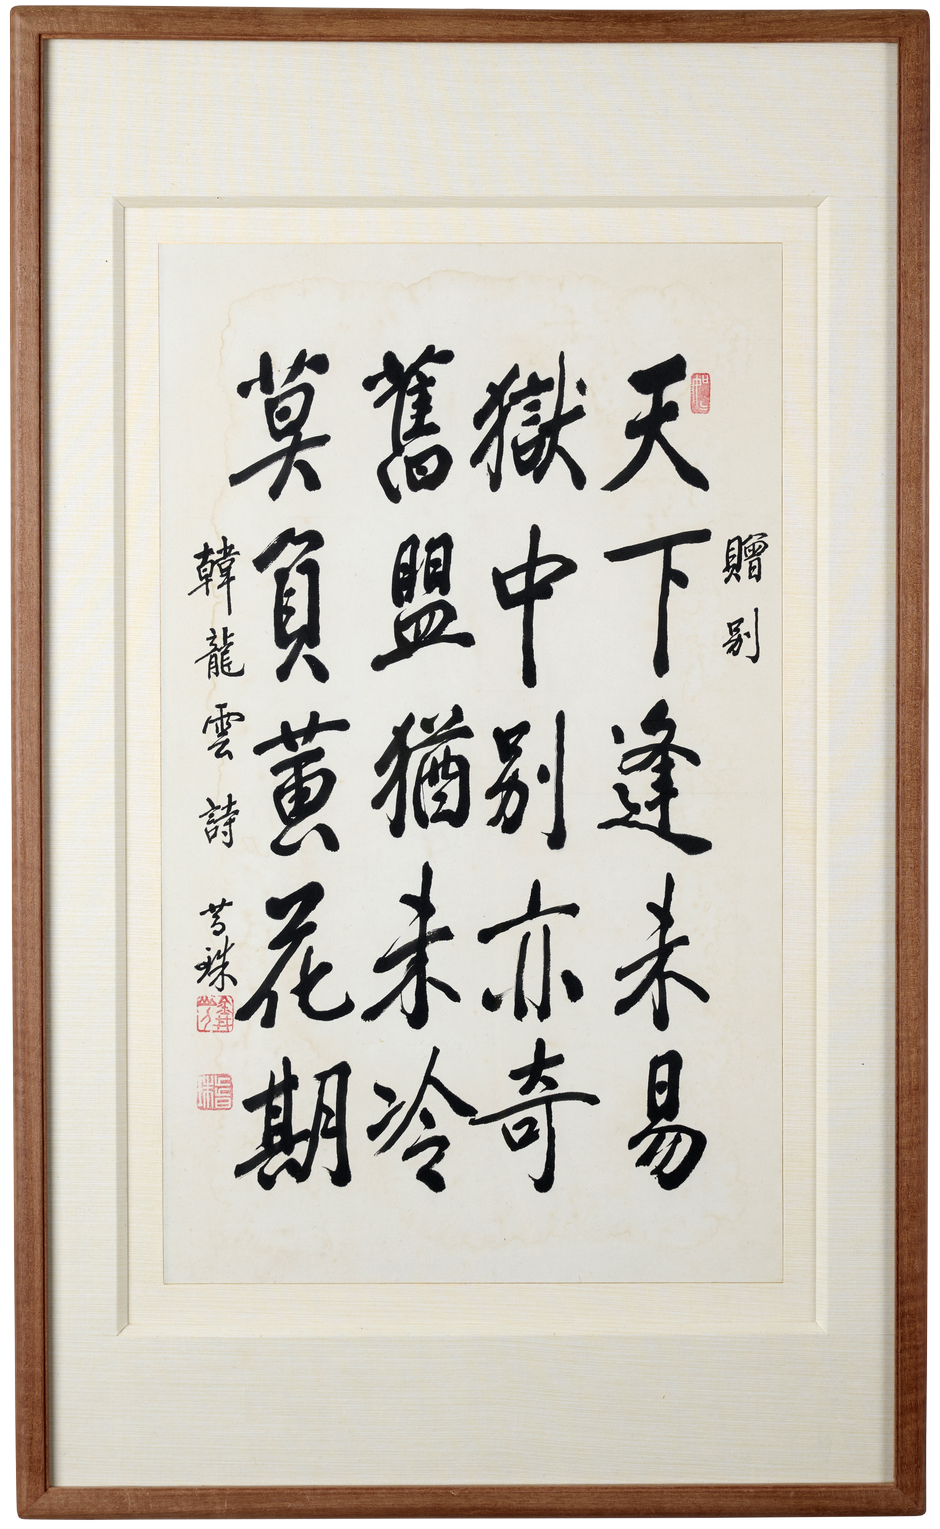 贈別
天下逢未易
獄中別亦奇
舊盟猶未冷
莫負黃花期
韓龍雲詩